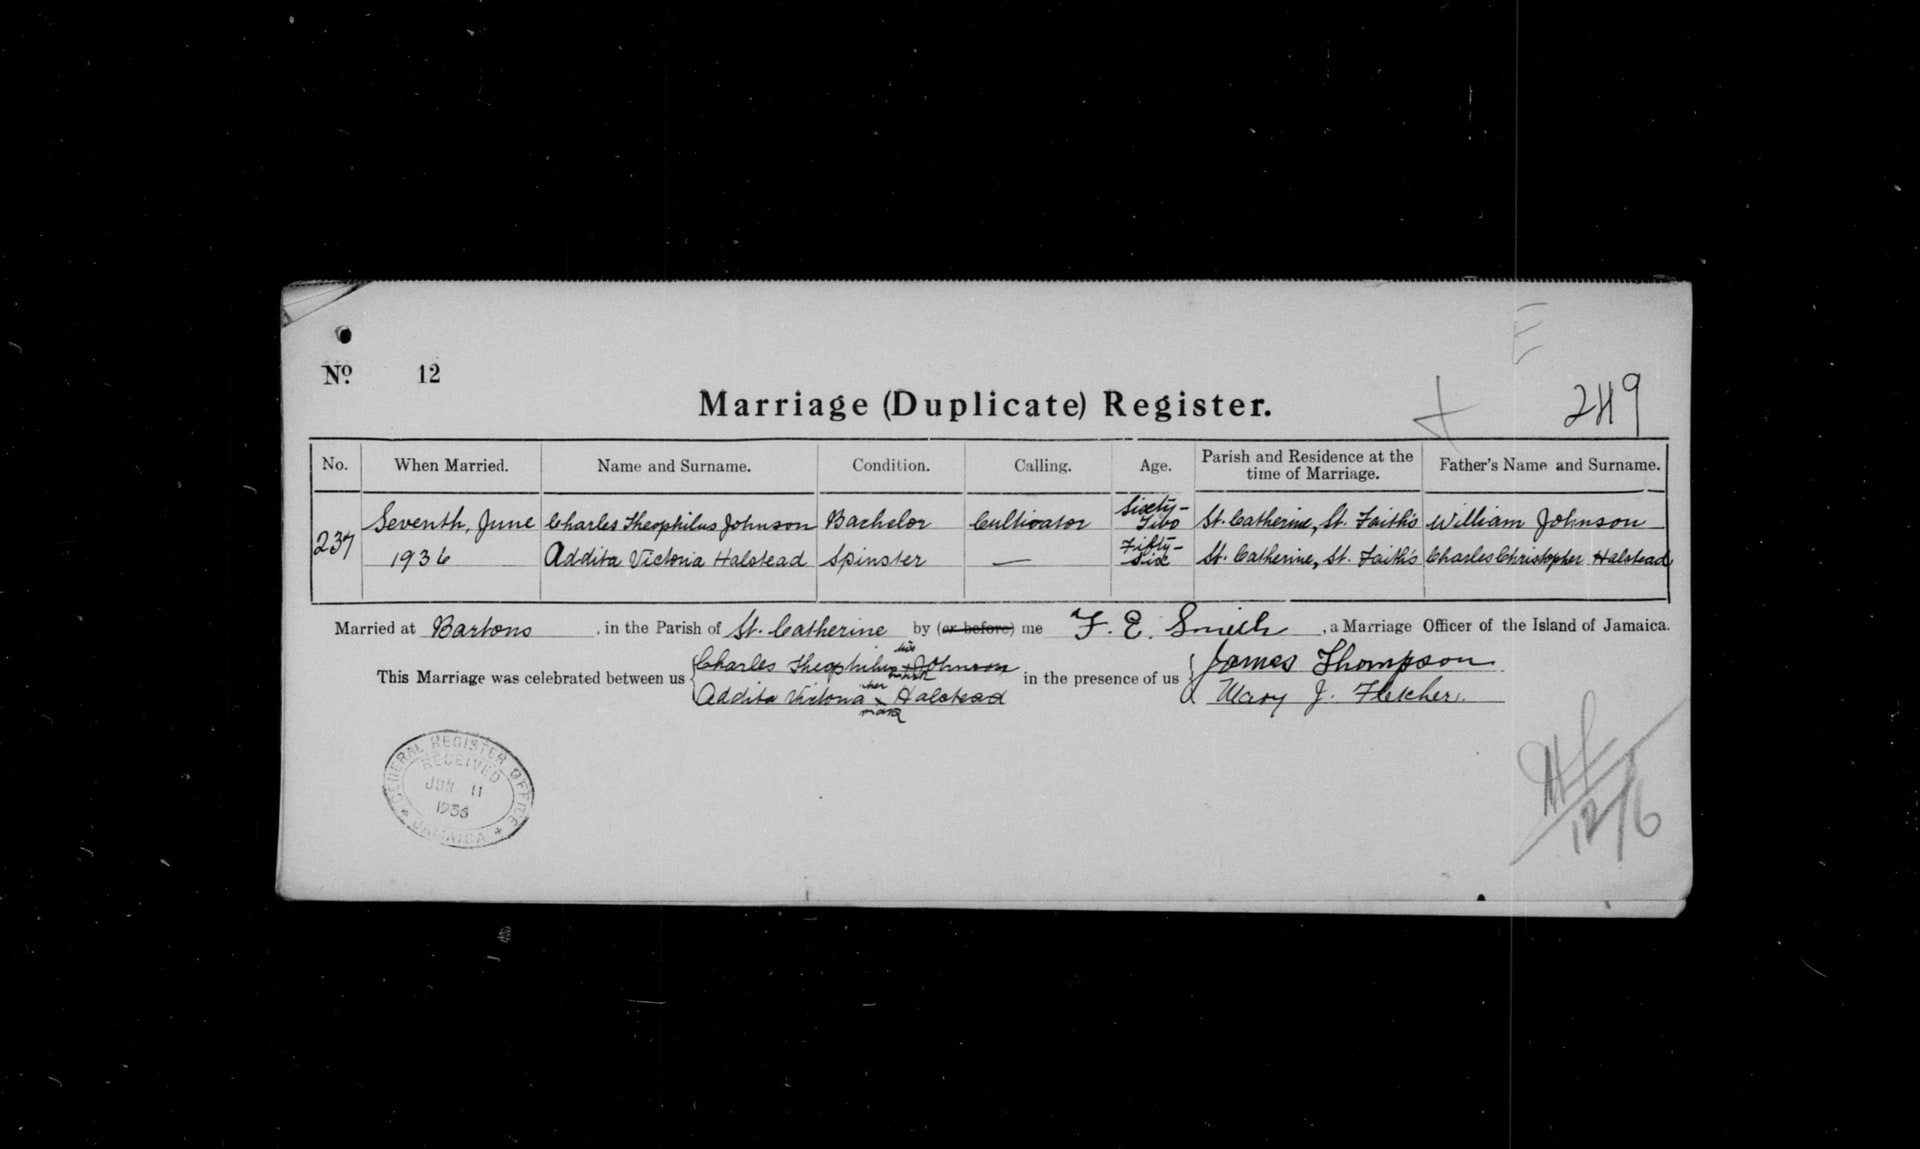 E
No. 12
249
Marriage (Duplicate) Register.
No. When Married. Name and Surname. Condition. Calling. Age. Parish and Residence at the time of Marriage. Father's Name and Surname.
237 Seventh, June Charles Theophilus Johnson Bachelor Cultivator Sixty-Two St. Catherine, St. Faith's William Johnson
1936 Addita Victoria Halstead Spinster — Fifty-Six St. Catherine, St. Faith's Charles Christopher Halstead
Married at Bartons, in the Parish of St. Catherine by (or before) me F. E. Smith, a Marriage Officer of the Island of Jamaica.
This Marriage was celebrated between us { Charles Theophilus his x mark Johnson in the presence of us { James Thompson
Addita Victoria her x mark Halstead Mary J. Fletcher.
GENERAL REGISTER OFFICE
RECEIVED
JUN 11
1936
JAMAICA
12/6